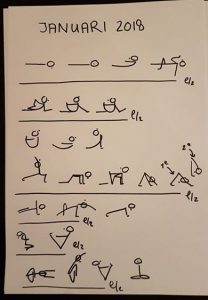 JANUARI 2018
e/2
e/2
2e
1e
e/2
e/2
e/2